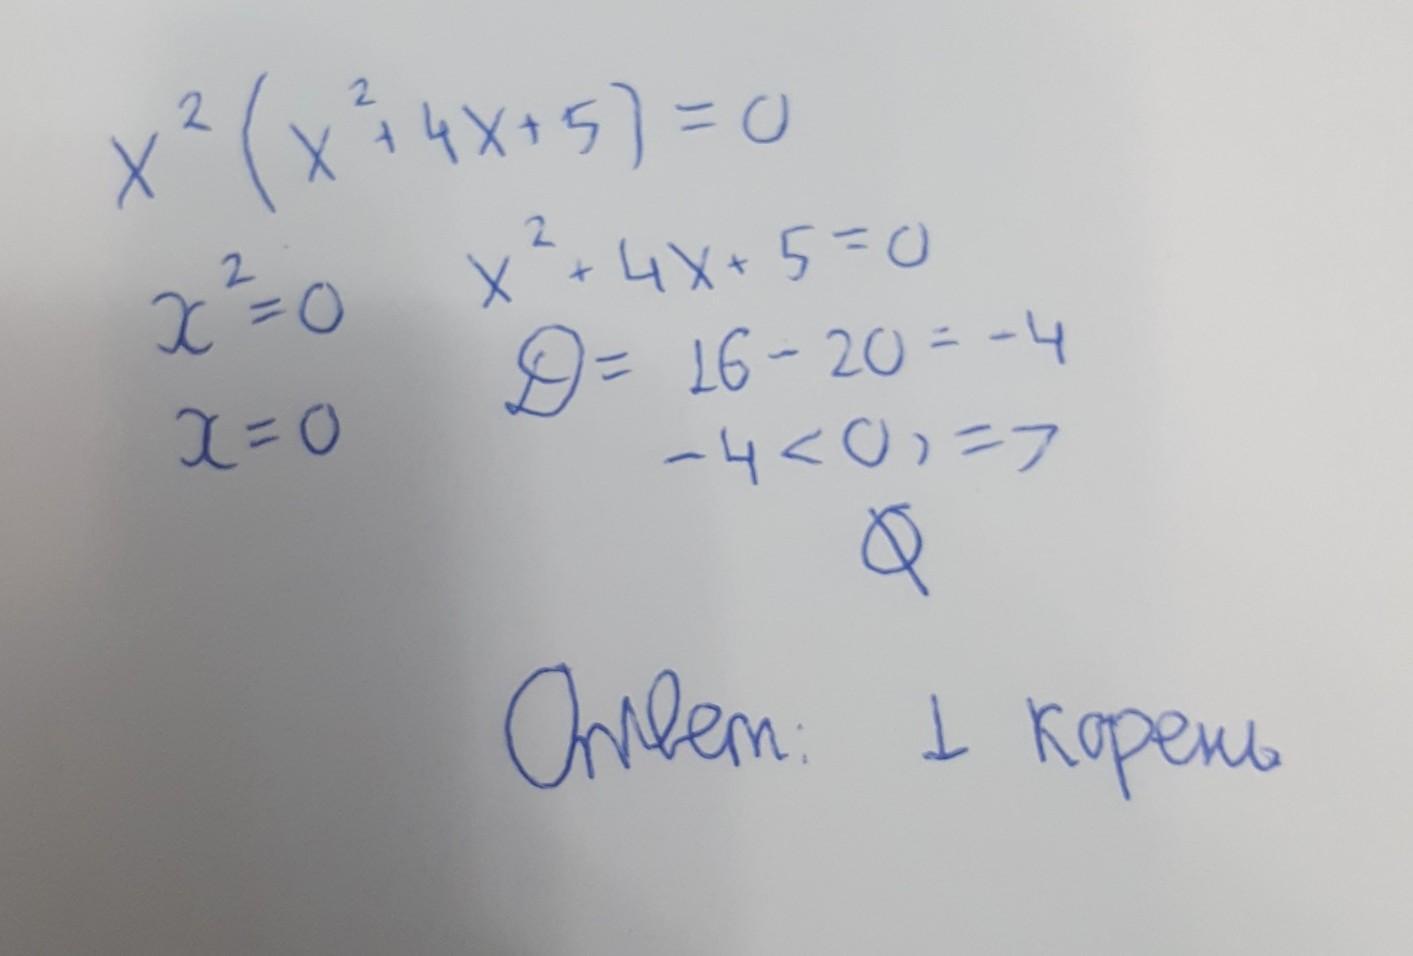 x²(x²+4x+5)=0
x²=0 x²+4x+5=0
x=0 D=16-20=-4
-4<0, =>
∅
Ответ: 1 корень